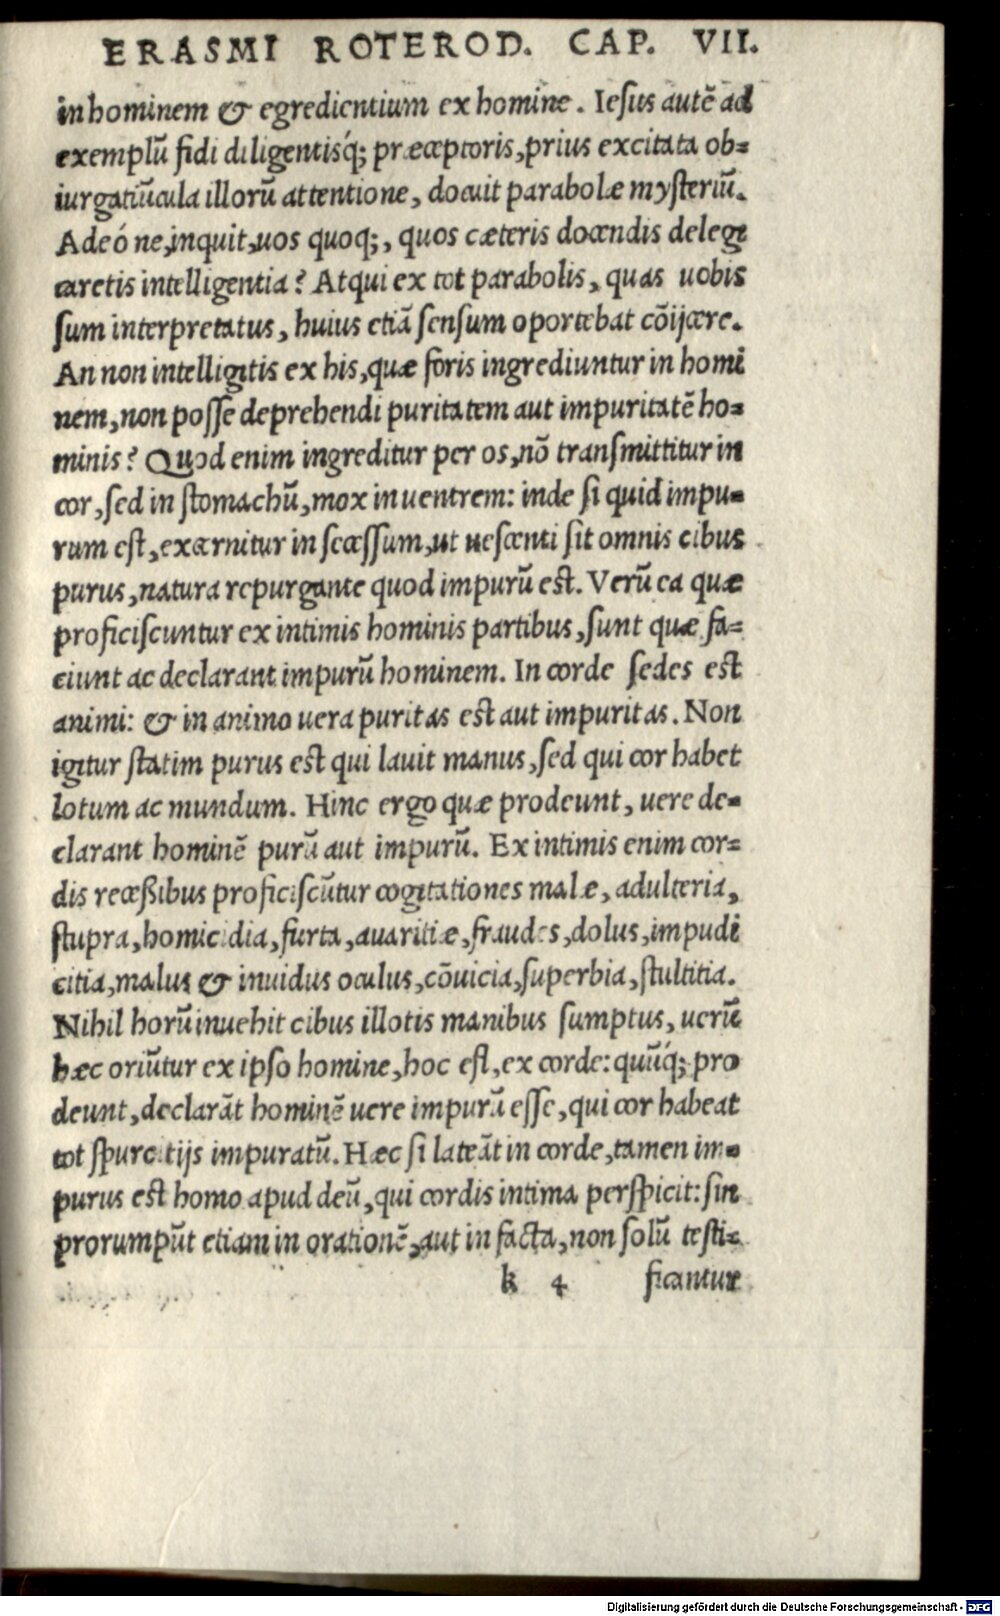 ERASMI ROTEROD. CAP. VII.
in hominem & egredientium ex homine. Iesus autē ad
exemplū fidi diligentisq́; præceptoris, prius excitata ob-
iurgatiūcula illorū attentione, docuit parabolæ mysteriū.
Adeó ne, inquit, uos quoq;, quos cæteris docendis delegi
caretis intelligentia? Atqui ex tot parabolis, quas uobis
sum interpretatus, huius etiā sensum oportebat cōijcere.
An non intelligitis ex his, quæ foris ingrediuntur in homi
nem, non posse deprehendi puritatem aut impuritatē ho-
minis? Quod enim ingreditur per os, nō transmittitur in
cor, sed in stomachū, mox in uentrem: inde si quid impu-
rum est, excernitur in secessum, ut uescenti sit omnis cibus
purus, natura repurgante quod impurū est. Verū ea quæ
proficiscuntur ex intimis hominis partibus, sunt quæ fa-
ciunt ac declarant impurū hominem. In corde sedes est
animi: & in animo uera puritas est aut impuritas. Non
igitur statim purus est qui lauit manus, sed qui cor habet
lotum ac mundum. Hinc ergo quæ prodeunt, uere de-
clarant hominē purū aut impurū. Ex intimis enim cor-
dis receßibus proficiscūtur cogitationes malæ, adulteria,
stupra, homicidia, furta, auaritiæ, fraudes, dolus, impudi
citia, malus & inuidus oculus, cōuicia, superbia, stultitia.
Nihil horū inuehit cibus illotis manibus sumptus, uerū
hæc oriūtur ex ipso homine, hoc est, ex corde: quūq́; pro
deunt, declarāt hominē uere impurū esse, qui cor habeat
tot spurcitijs impuratū. Hæc si lateāt in corde, tamen im-
purus est homo apud deū, qui cordis intima perspicit: sin
prorumpūt etiam in orationē, aut in facta, non solū testi-
k 4 ficantur
Digitalisierung gefördert durch die Deutsche Forschungsgemeinschaft - DFG